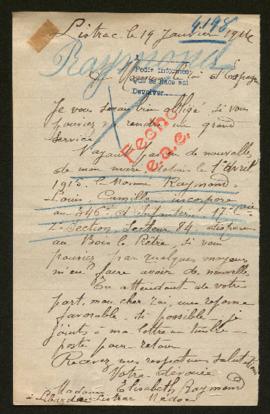 4.198
Listrac le 19 Janvier 1916
Raymond
A Monsieur le Roi d'Espagne
Pedir informes
Devolver
Je vous serais bien obligé si vous
pouviez me rendre un grand
Service
N'ayant pas de nouvelles
de mon mari depuis le 1er Avril
1915. le Nommé Raymond
Louis Camille incorporé
au 346e d'Infanterie 17e Cie
2e Section Secteur 84 disparu
au Bois le Prêtre si vous
pouviez par quelques moyens
m'en faire avoir de nouvelle
En attendant de votre
part, mon cher roi, une réponse
favorable si possible je
joints à ma lettre un timbre
poste pour retour
Recevez mes respectueuses salutations
Votre dévouée
Madame Elisabeth Raymond
à Listrac Médoc
Fecho